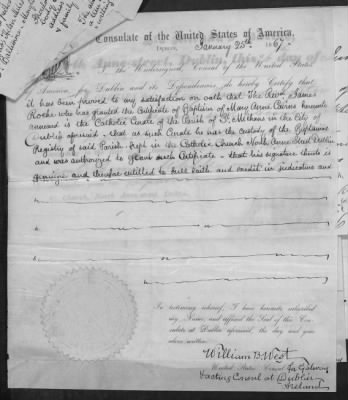 Consulate of the United States of America,
Dublin, January 25th 1867
the Undersigned, Consul of the United States
America for Dublin and its Dependencies, do hereby Certify that
it has been proved to my satisfaction on oath that The Revd James
Roche who has granted the Certificate of Baptism of Mary Anne Cairns hereunto
annexed is the Catholic Curate of the Parish of St. Michans in the City of
Dublin aforesaid. - that as such Curate he has the custody of the Baptisms
Registry of said Parish kept in the Catholic Church North Anne Street Dublin
and was authorized to grant such Certificate - that his signature thereto is
genuine and therefore entitled to full faith and credit in judicature and
In testimony whereof, I have hereunto subscribed
my Name, and affixed the Seal of this Con-
sulate at Dublin aforesaid, the day and year
above written.
William B. West
United States Consul for Galway
&acting Consul at Dublin
Ireland